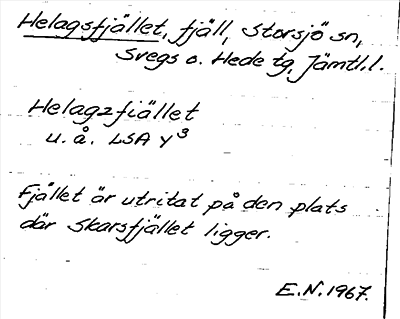 Helagsfjället, fjäll, Storsjö sn,
Svegs o. Hede tg, Jämtl.l.
Helagzfiället
u. å. LSA Y3
Fjället är utritat på den plats
där Skarsfjället ligger.
E.N. 1967.